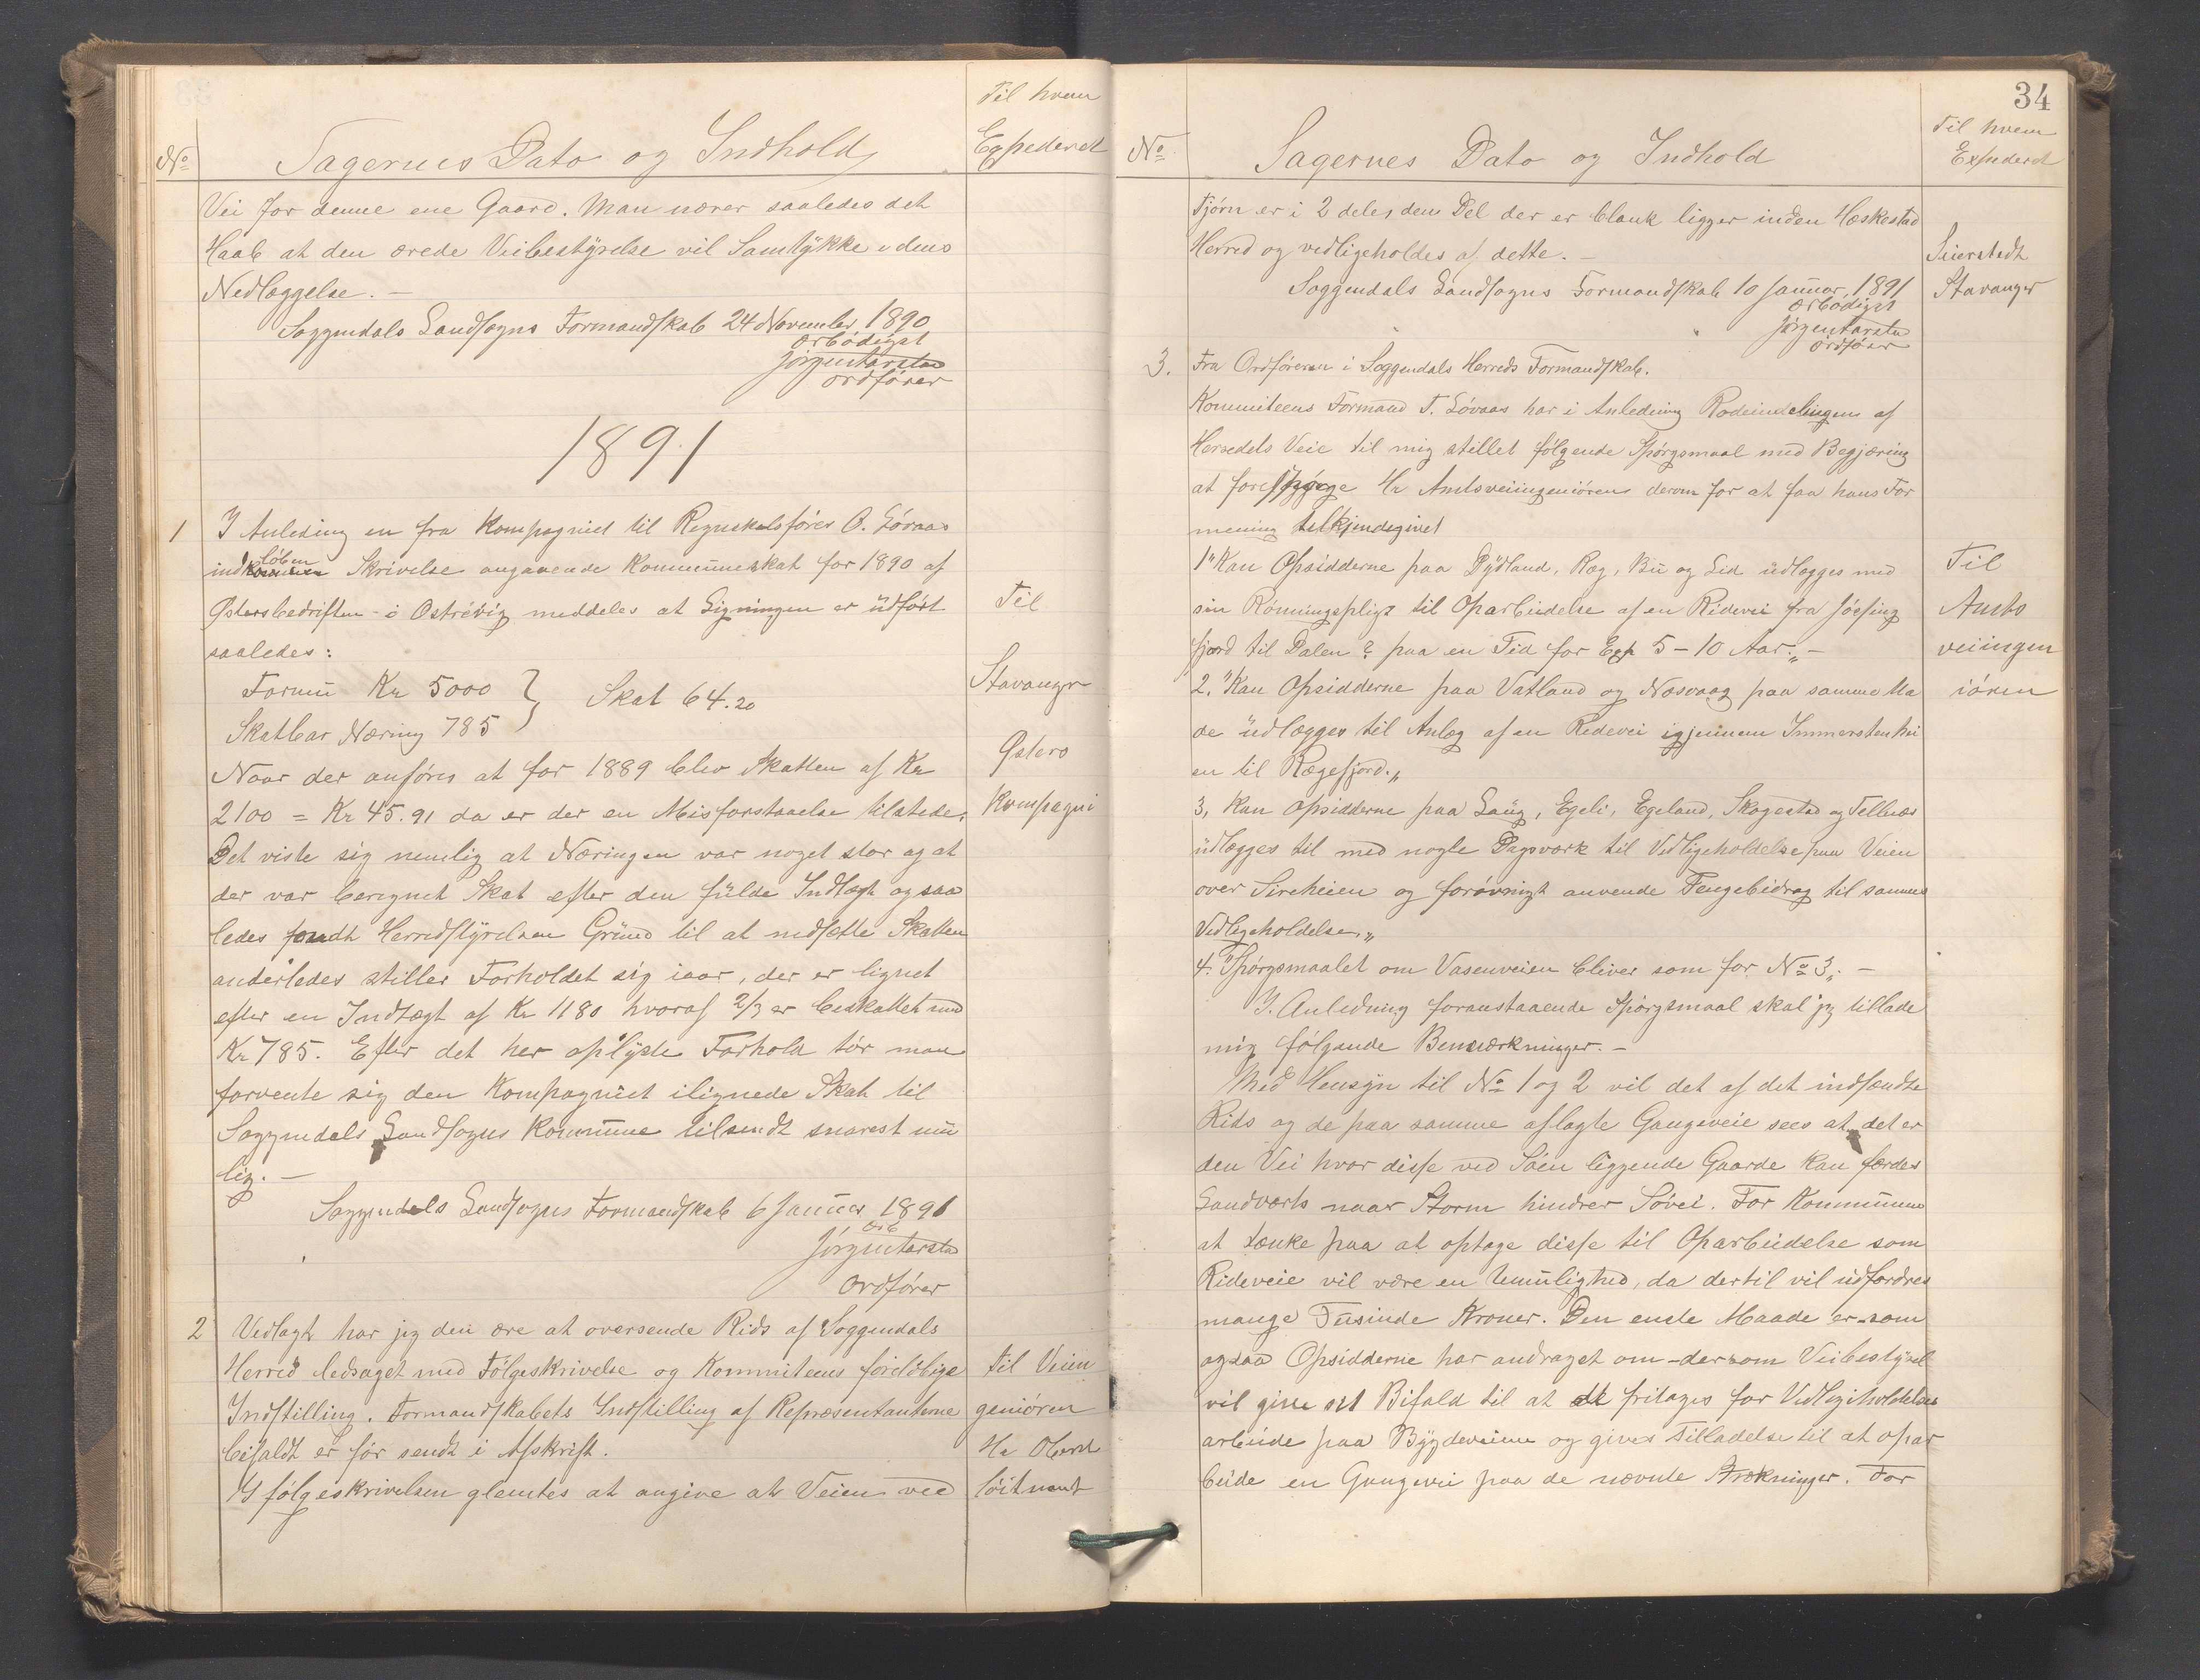 Til hvem
No Sagernes Dato og Indhold Expederet
Vei for denne ene Gaard. Man nærer saaledes det
Haab at den ærede Veibestÿrelse vil Samtÿkke i dens
Nedlæggelse. —
Soggendals Landsogns Formandskab 24 November 1890
ærbødigst
Jørgen Tarstad
ordfører
1891
1 I Anleding en fra Kompagniet til Regnskabsfører O. Løvaas
indløben Skrivelse angaaende Kommuneskat for 1890 af
Østersbedriften i Ostrevig meddeles at Ligningen er üdført
saaledes:
Formü Kr 5000 } Skat 64.20
Skatbar Næring 785
Naar der anføres at for 1889 blev Skatten af Kr
2100 = Kr 45.91 da er der en Misforstaaelse tilstede.
Det viste sig nemlig at Næringen var noget stor og at
der var beregnet Skat efter den fülde Indtægt og saa
ledes fandt Herredstÿrelsen Gründ til at nedsætte Skatten
anderledes stiller Forholdet sig iaar, der er lignet
efter en Indtægt af Kr 1180 hvoraf 2/3 er beskattet med
Kr 785. Efter det her oplÿste Forhold tør man
forvente sig den Kompagniet ilignede Skat til
Soggendals Landsogns Kommüne tilsendt snarest mü
lig. —
Soggendals Landsogns Formandskab 6 Januar 1891
ærb
Jørgen Tarstad
Ordfører
Til
Stavanger
Østers
Kompagni
2 Vedlagt har jeg den ære at oversende Rids af Soggendals
Herred ledsaget med Følgeskrivelse og Kommiteens foreløbige
Indstilling. Formandskabets Indstilling af Repræsentanterne
bifaldt er før sendt i Afskrift.
I følgeskrivelsen glemtes at angive at Veien ved
Til Veiin
geniøren
Hr Oberst
løitnant
34
Til hvem
No Sagernes Dato og Indhold Expederet
Tjørn er i 2 dele, den Del der er blank ligger inden Heskestad
Herred og vedligeholdes af dette. —
Soggendals Landsogns Formandskab 10 Januar 1891
ærbødigst
Jørgen Tarstad
ordfører
Seierstedt
Stavanger
3. Fra Ordføreren i Soggendals Herreds Formandskab.
Kommiteens Formand T. Løvaas har i Anledning Rodeindelingen af
Herredets Veie til mig stillet følgende Spørgsmaal med Begjæring
at forespørge Hr Amtsveiingeniøren derom for at faa hans For
mening tilkjendegivet
1" Kan Opsidderne paa Dÿdland, Ræg, Bü og Lid üdlægges med
sin Rønningspligt til Oparbeidelse af en Ridevei fra Jøssing
fjord til Dalen? paa en Tid for Exp 5–10 Aar„ —
2." Kan Opsidderne paa Vatland og Nesvaag paa samme Ma
de üdlægges til Anlæg af en Ridevei igjennem Immerstenhei
en til Rægefjord.„
3, Kan Opsidderne paa Laug, Egeli, Egeland, Skogestad og Tellnes
üdlægges til med nogle Dagsværk til Vedligeholdelse paa Veien
over Sireheien og forøvrigt anvende Pengebidrag til sammes
Vedligeholdelse„
4." Spørgsmaalet om Vasenveien bliver som for No 3„ —
I. Anledning foranstaaende Spørgsmaal skal jeg tillade
mig følgende Bemærkninger. —
Med Hensÿn til No 1 og 2 vil det af det indsendte
Rids og de paa samme aflagte Gangveie sees at det er
den Vei hvor disse ved Søen liggende Gaarde kan færdes
Landværts naar Storm hindrer Søvei. For Kommunen
at tænke paa at optage disse til Oparbeidelse som
Rideveie vil være en Umülighed, da dertil vil üdfordres
mange Tusinde Kroner. Den eneste Maade er som
ogsaa Opsidderne har andraget om – dersom Veibestÿrel
vil give sit Bifald til at de fritages for Vedligeholdelses
arbeide paa Bÿgdeveiene og gives Tilladelse til at opar
beide en Gangvei paa de nævnte Strækninger. For
Til
Amts
veiingen
iøren